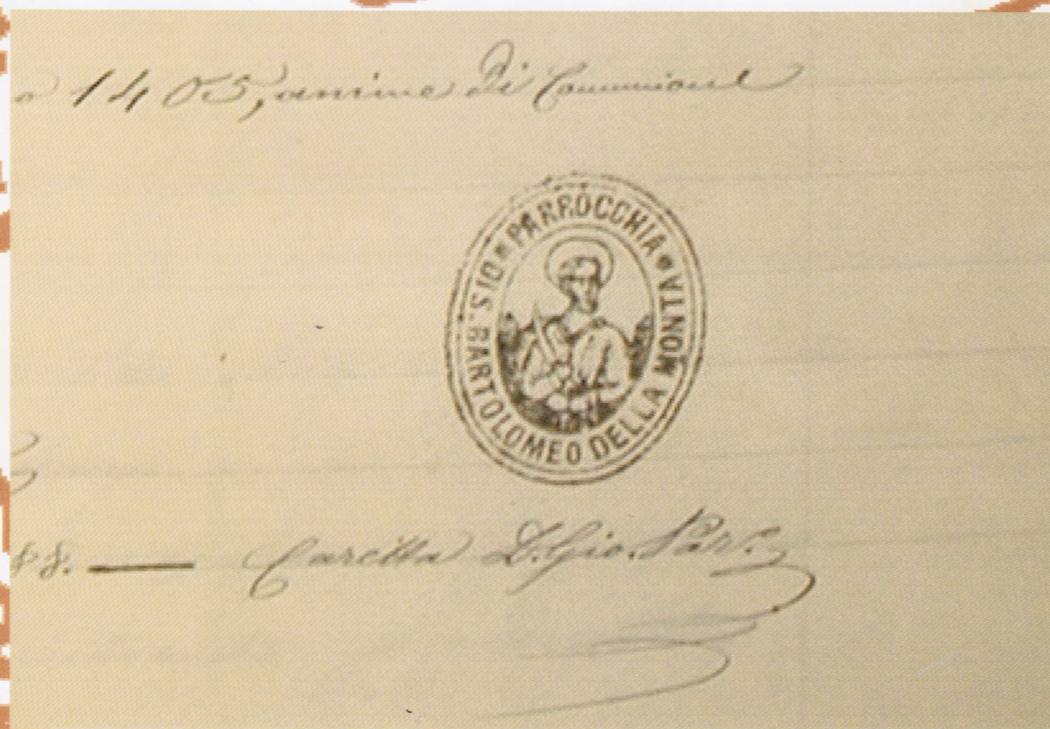 o 1405, anime di Comunione
PARROCCHIA
DI S. BARTOLOMEO DELLA MONTA
88. — Caretta D. Gio. Par.